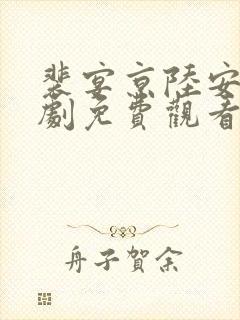 裴宴京陸安
劇免費觀看
舟子賀余